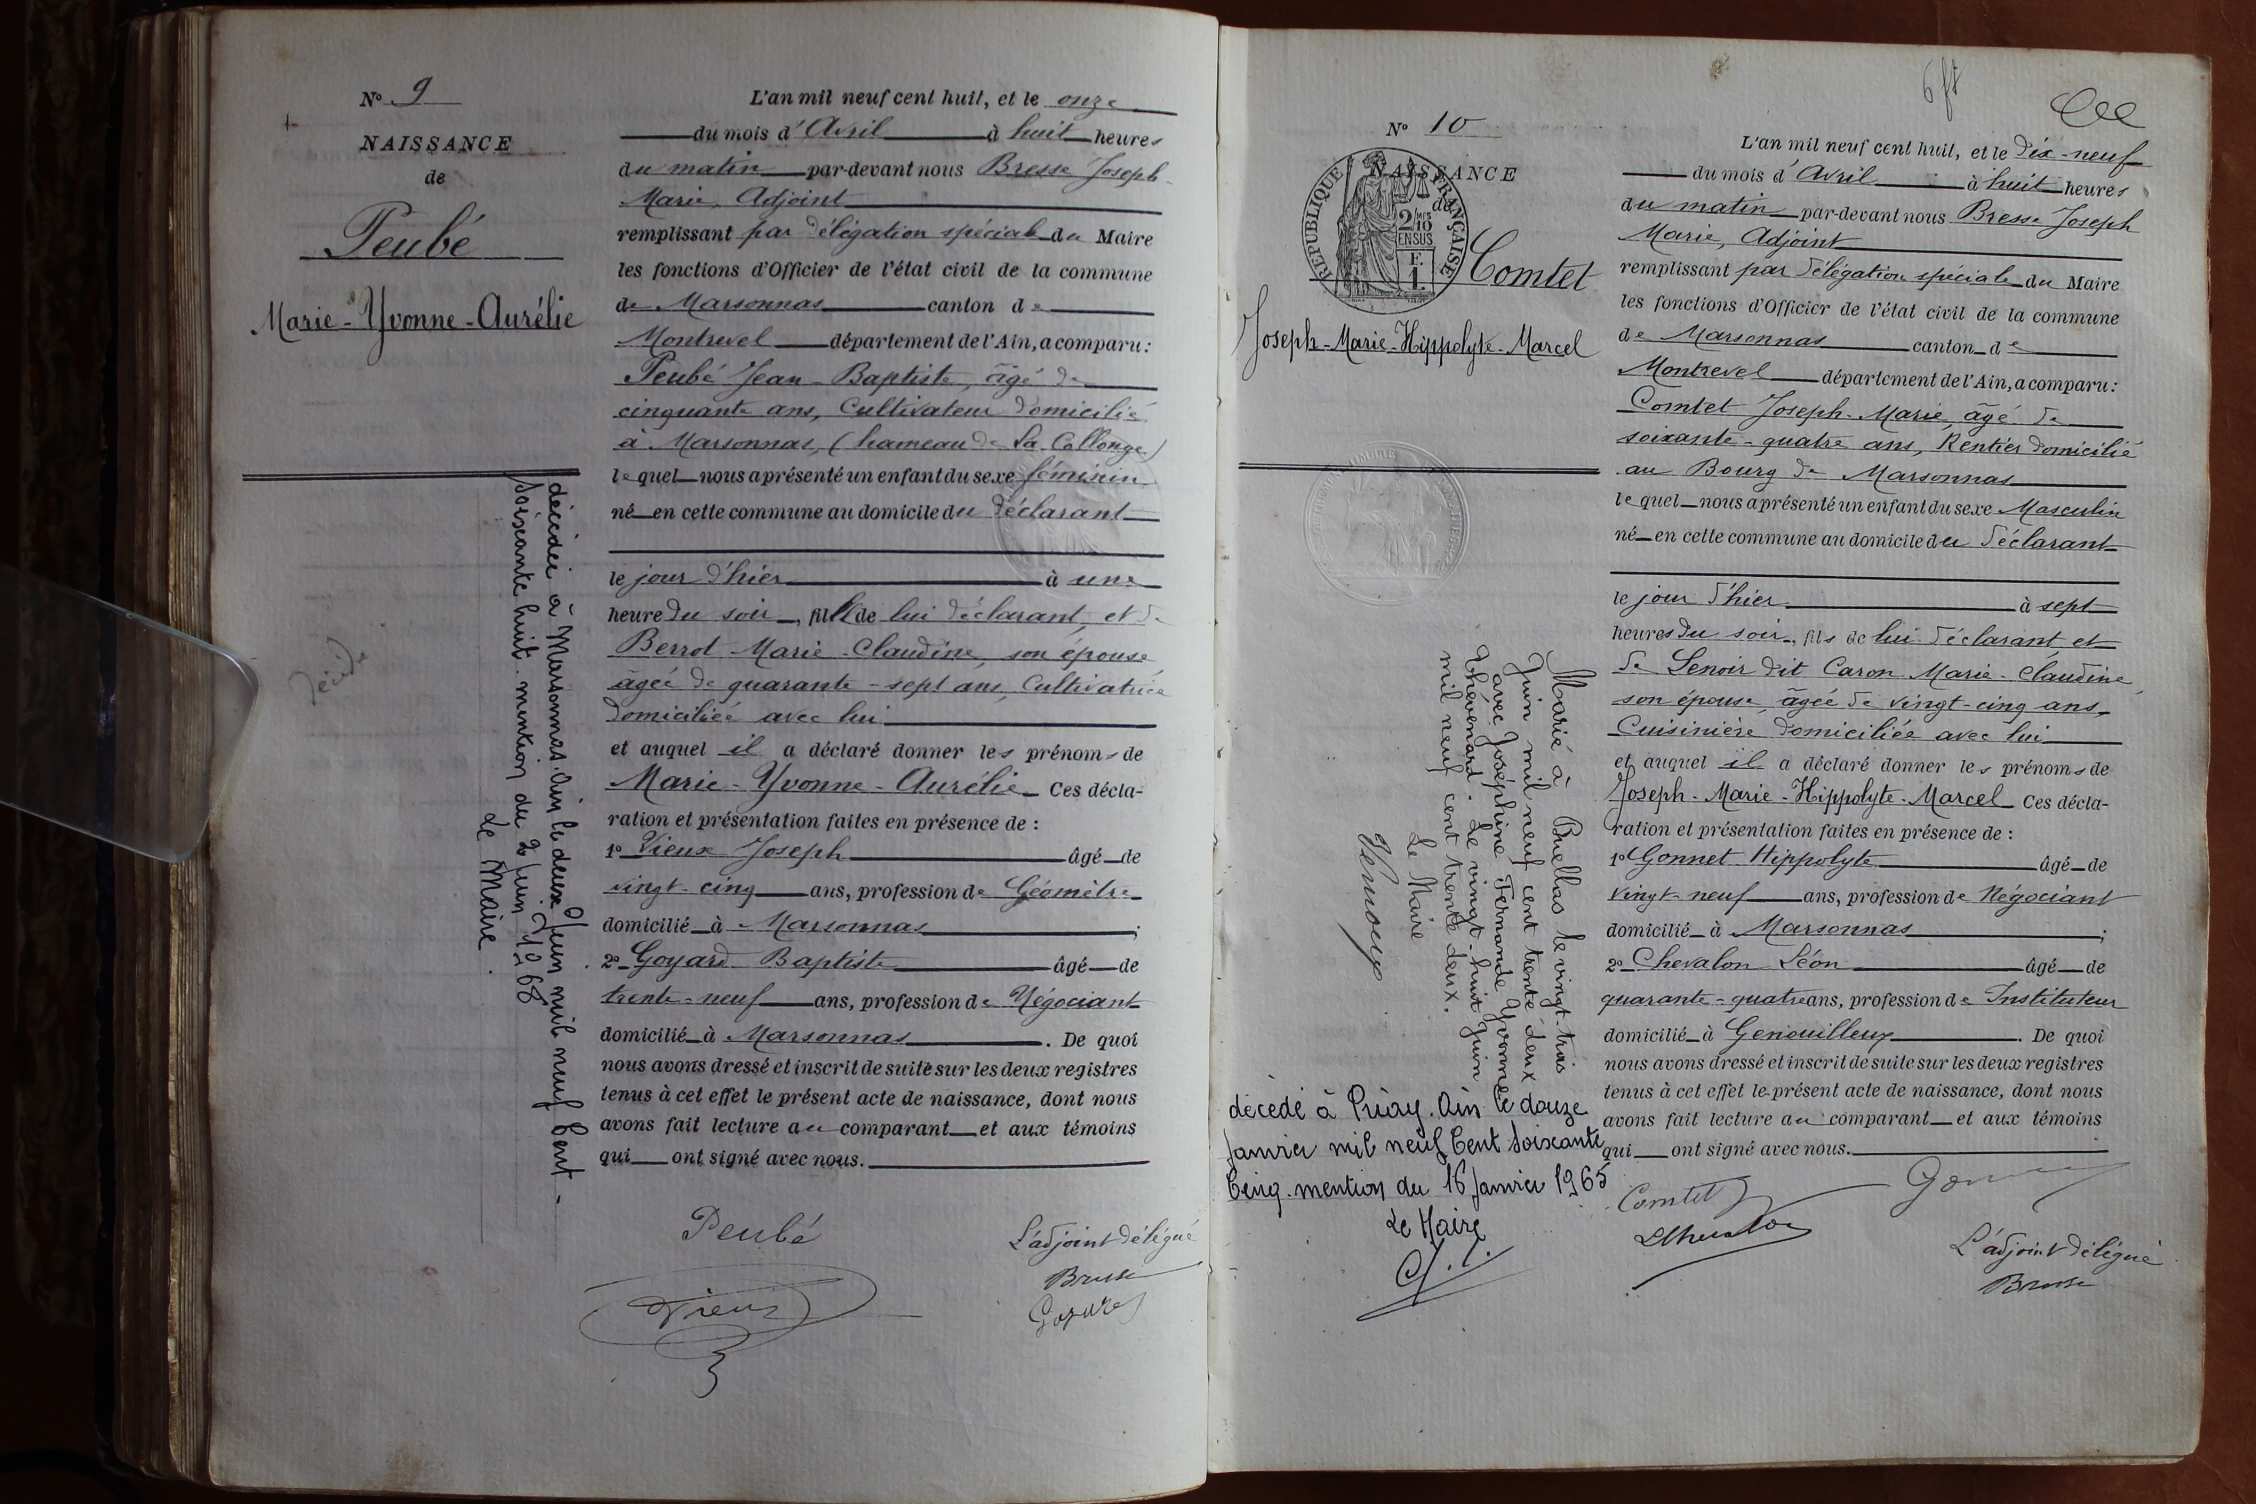 N° 9
NAISSANCE
de
Peubé
Marie-Yvonne-Aurélie
décédée à Marsonnas. Ain le deux Juin mil neuf Cent
Soixante huit. mention du 2 Juin 1968
Le Maire.
L'an mil neuf cent huit, et le onze
du mois d'Avril à huit heures
du matin par-devant nous Bresse Joseph
Marie, Adjoint
remplissant par délégation spéciale du Maire
les fonctions d'Officier de l'état civil de la commune
de Marsonnas canton de
Montrevel département de l'Ain, a comparu:
Peubé Jean-Baptiste, âgé de
cinquante ans, Cultivateur domicilié
à Marsonnas, (hameau de La Collonge)
lequel nous a présenté un enfant du sexe féminin
né en cette commune au domicile du déclarant
le jour d'hier à une
heure du soir, fille de lui déclarant, et de
Berrot Marie-Claudine, son épouse
âgée de quarante-sept ans, Cultivatrice
domiciliée avec lui
et auquel il a déclaré donner les prénoms de
Marie-Yvonne-Aurélie Ces décla-
ration et présentation faites en présence de :
1° Vieux Joseph âgé de
vingt-cinq ans, profession de Géomètre
domicilié à Marsonnas ;
2° Goyard Baptiste âgé de
trente-neuf ans, profession de Négociant
domicilié à Marsonnas. De quoi
nous avons dressé et inscrit de suite sur les deux registres
tenus à cet effet le présent acte de naissance, dont nous
avons fait lecture au comparant et aux témoins
qui ont signé avec nous.
Peubé
L'adjoint délégué
Bresse
Vieux
Goyard
N° 10
NAISSANCE
de
RÉPUBLIQUE FRANÇAISE
2/10
EN SUS
F.
1.
Comtet
Joseph-Marie-Hippolyte-Marcel
Marié à Buellas le vingt-trois
Juin mil neuf cent trente deux
avec Joséphine Fernande Yvonne
Thevenard. Le vingt-huit Juin
mil neuf cent trente deux.
Le Maire
décédé à Priay. Ain le douze
Janvier mil neuf Cent Soixante
Cinq. mention du 16 Janvier 1965
Le Maire
L'an mil neuf cent huit, et le dix-neuf
du mois d'Avril à huit heures
du matin par-devant nous Bresse Joseph
Marie, Adjoint
remplissant par délégation spéciale du Maire
les fonctions d'Officier de l'état civil de la commune
de Marsonnas canton de
Montrevel département de l'Ain, a comparu:
Comtet Joseph-Marie âgé de
soixante-quatre ans, Rentier domicilié
au Bourg de Marsonnas
lequel nous a présenté un enfant du sexe Masculin
né en cette commune au domicile du déclarant
le jour d'hier à sept
heures du soir, fils de lui déclarant et
de Lenoir dit Caron Marie-Claudine,
son épouse, âgée de vingt-cinq ans,
Cuisinière domiciliée avec lui
et auquel il a déclaré donner les prénoms de
Joseph-Marie-Hippolyte-Marcel Ces décla-
ration et présentation faites en présence de :
1° Gonnet Hippolyte âgé de
vingt-neuf ans, profession de Négociant
domicilié à Marsonnas ;
2° Chevalon Léon âgé de
quarante-quatre ans, profession de Instituteur
domicilié à Genouilleux. De quoi
nous avons dressé et inscrit de suite sur les deux registres
tenus à cet effet le présent acte de naissance, dont nous
avons fait lecture au comparant et aux témoins
qui ont signé avec nous.
Comtet
L'adjoint délégué
Bresse